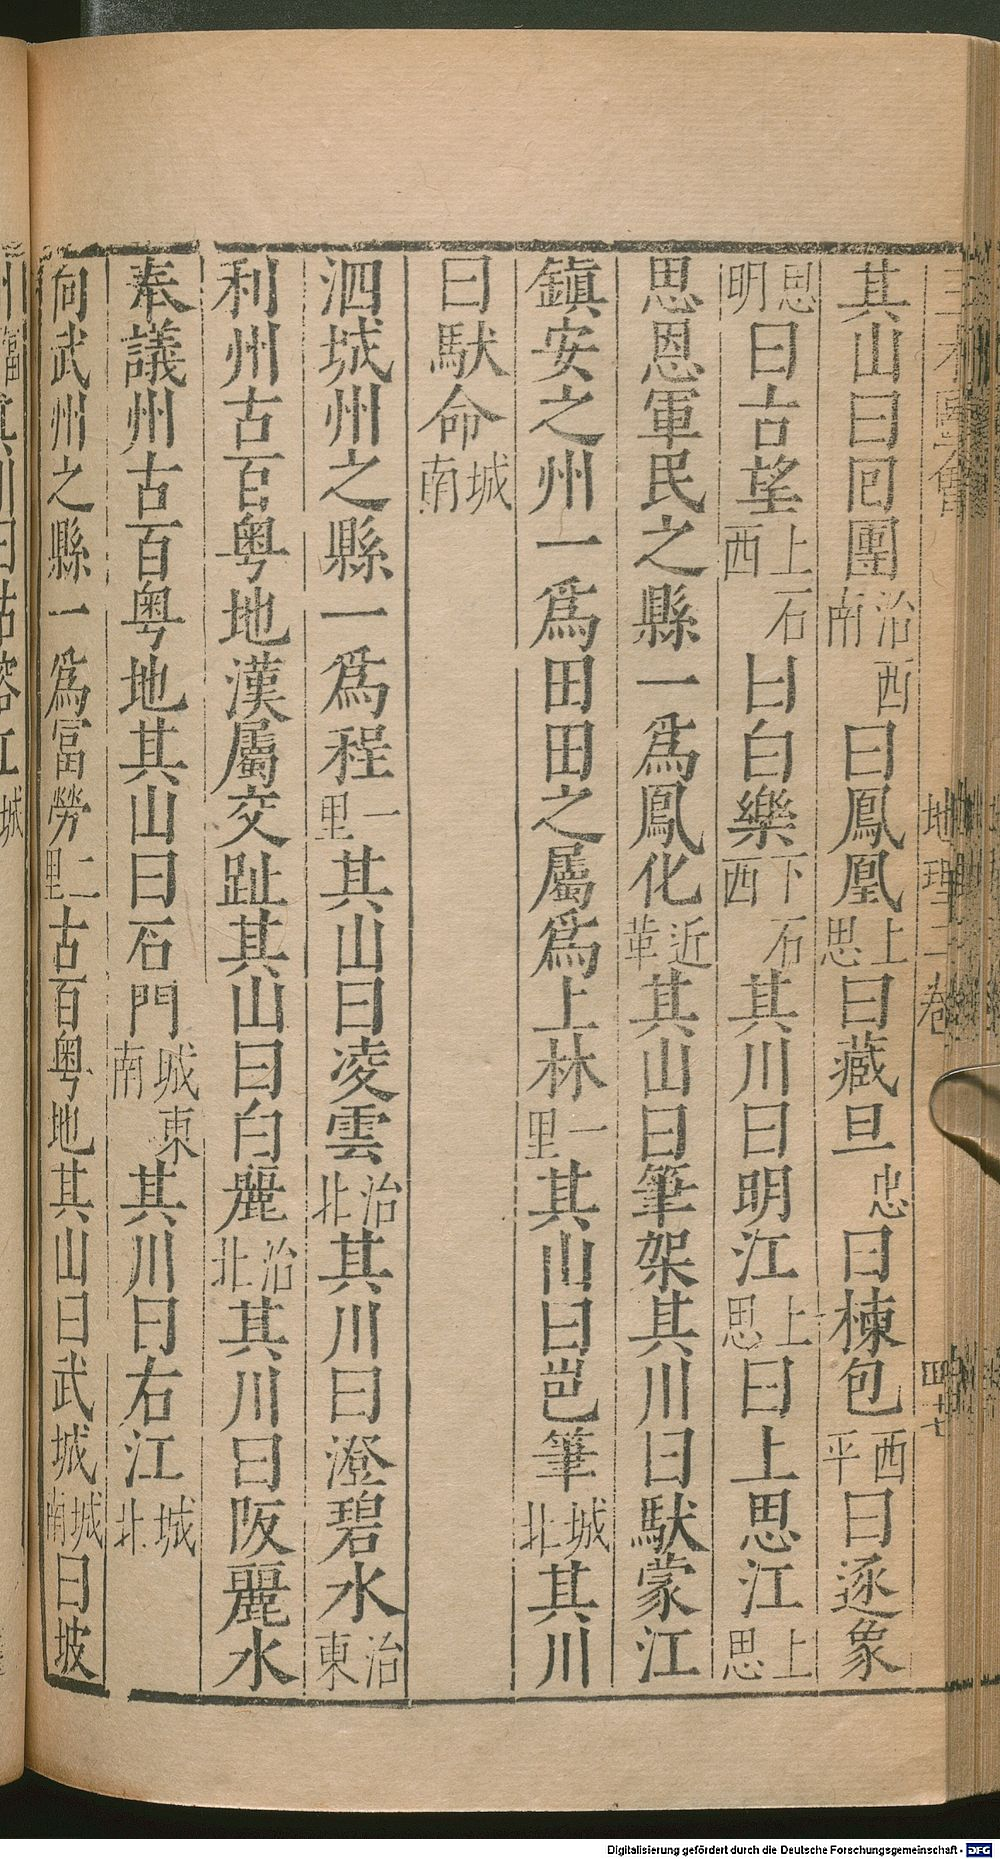 其山曰回團治西南曰鳳凰上思曰藏旦忠曰楝包西平曰逐象
思明曰古望上石西曰白樂下石西其川曰明江上思曰上思江上思
思恩軍民之縣一爲鳳化近革其山曰筆架其川曰馱蒙江
鎮安之州一爲田田之屬爲上林一里其山曰岜筆城北其川
曰馱命城南
泗城州之縣一爲程一里其山曰凌雲治北其川曰澄碧水治東
利州古百粤地漢屬交趾其山曰白麗治北其川曰阪麗水
奉議州古百粤地其山曰石門城東南其川曰右江城北
向武州之縣一爲富勞二里古百粤地其山曰武城城南曰坡
地理二卷
四十七
Digitalisierung gefördert durch die Deutsche Forschungsgemeinschaft - DFG